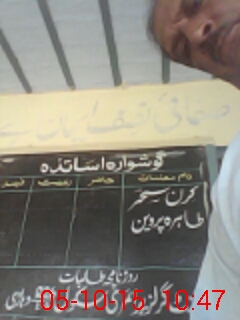 صفائی نصف ایمان ہے
گوشوارہ اساتذہ
نام معلمات حاضر رخصت
کرن سحر
طاہرہ پروین
روزنامچہ طالبات
گرلز
05-10-15 10:47